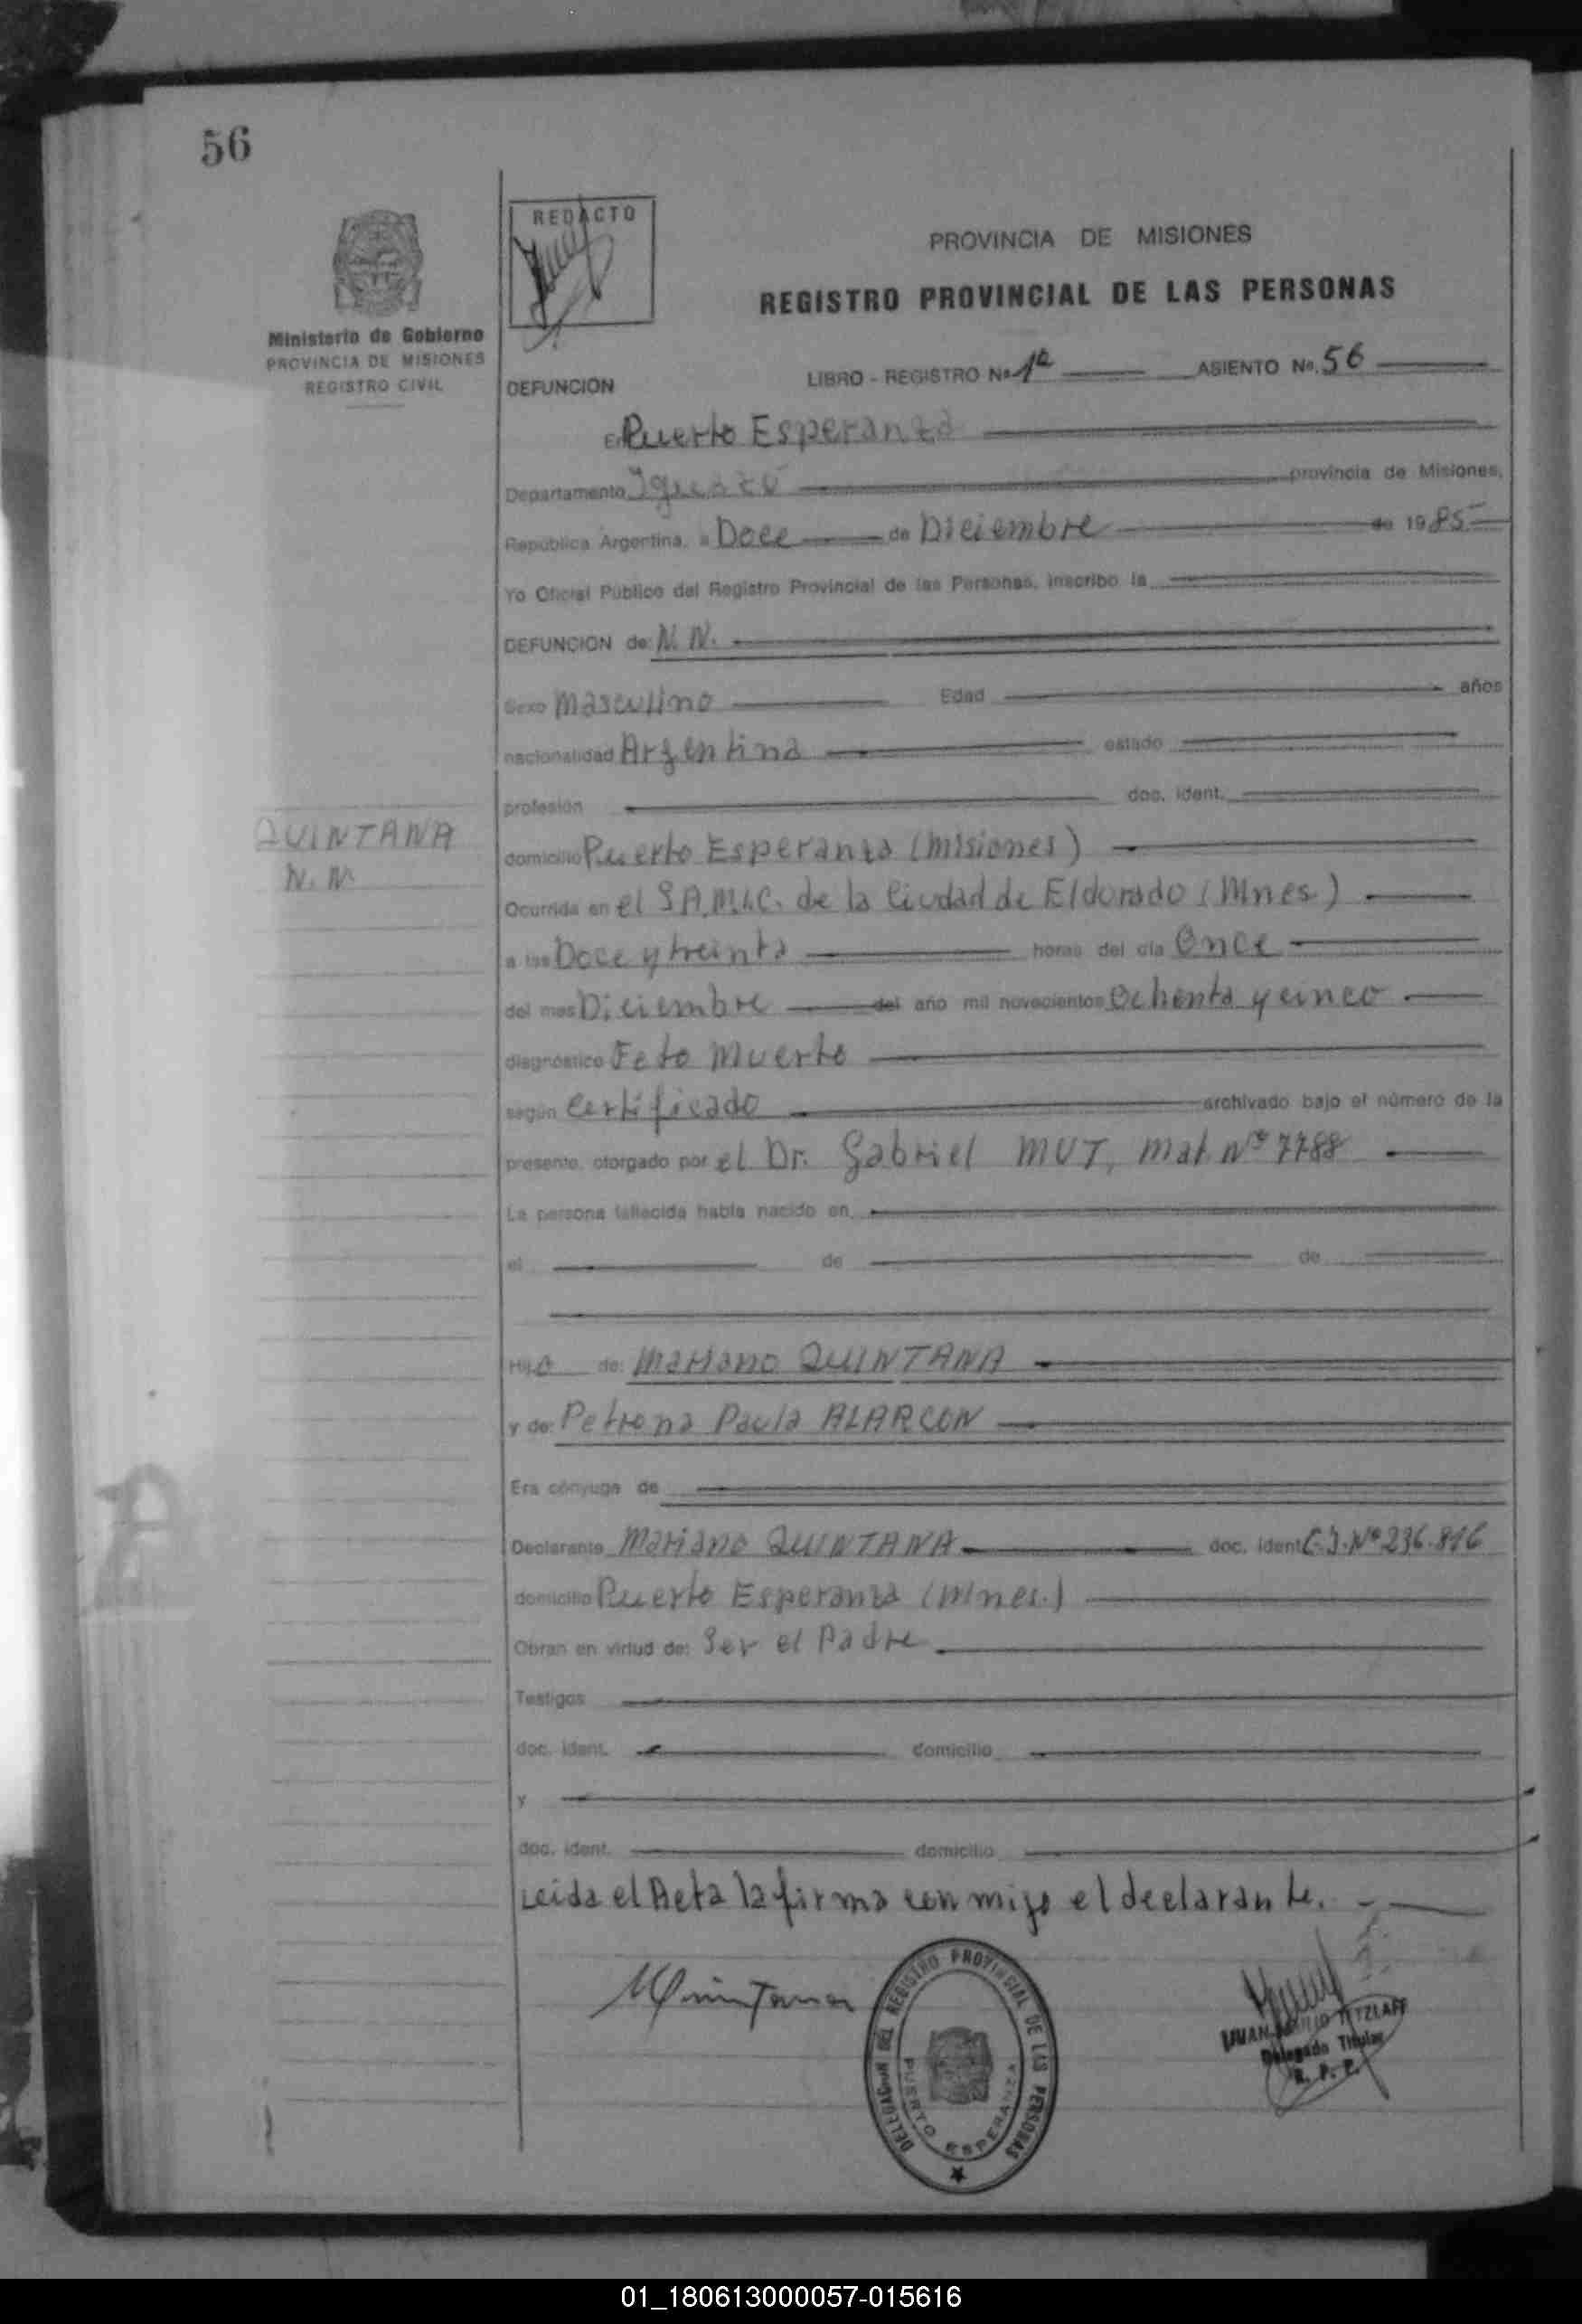 56
REDACTO
PROVINCIA DE MISIONES
REGISTRO PROVINCIAL DE LAS PERSONAS
Ministerio de Gobierno
PROVINCIA DE MISIONES
REGISTRO CIVIL
DEFUNCION LIBRO - REGISTRO Nº 1º ASIENTO Nº. 56
En Puerto Esperanza
Departamento Iguazú provincia de Misiones,
República Argentina, a Doce de Diciembre de 1985
Yo Oficial Público del Registro Provincial de las Personas, inscribo la
DEFUNCION de: N. N.
Sexo Masculino Edad años
nacionalidad Argentina estado
profesión doc. ident.
QUINTANA
N. N.
domicilio Puerto Esperanza (Misiones)
Ocurrida en el S.A.M.I.C. de la Ciudad de Eldorado (Mnes)
a las Doce y treinta horas del día Once
del mes Diciembre del año mil novecientos Ochenta y cinco
diagnóstico Feto Muerto
según Certificado archivado bajo el número de la
presente, otorgado por el Dr. Gabriel MUT, Mat Nº 7788
La persona fallecida había nacido en
el de de
Hijo de: Mariano QUINTANA
y de: Petrona Paula ALARCON
Era cónyuge de
Declarante Mariano QUINTANA doc. ident C.I. Nº 236.816
domicilio Puerto Esperanza (Mnes.)
Obran en virtud de: Ser el Padre
Testigos
doc. ident. domicilio
y
doc. ident. domicilio
Leida el Acta la firma con migo el declarante.
MQuintana
DELEGACION DEL REGISTRO PROVINCIAL DE LAS PERSONAS
PUERTO ESPERANZA
TETZLAFF
Delegado Titular
R. P. P.
01_180613000057-015616